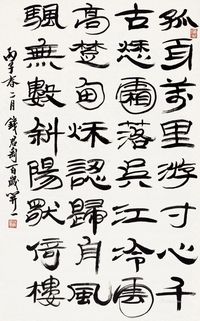 孤身萬里游寸心千
古愁霜落吳江冷雲
高楚甸秋認歸舟風
颿無數斜陽默倚樓
丙子春二月錢君匋百歲